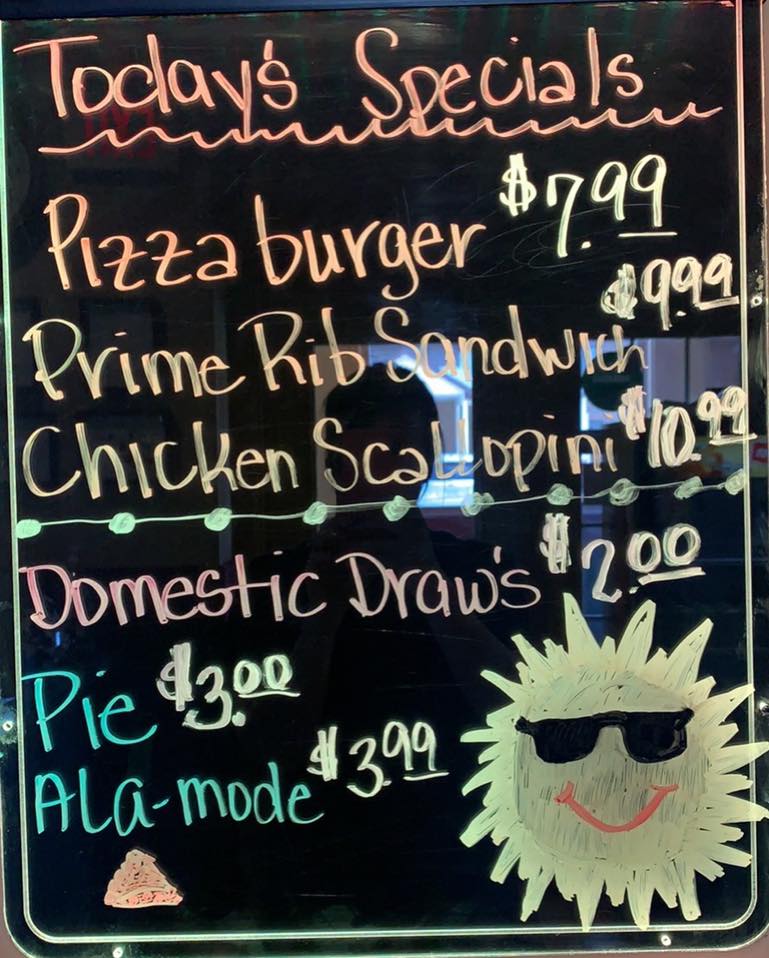 Today's Specials
Pizza burger $7.99
Prime Rib Sandwich $9.99
Chicken Scallopini $10.99
Domestic Draw's $2.00
Pie $3.00
ALa-mode $3.99